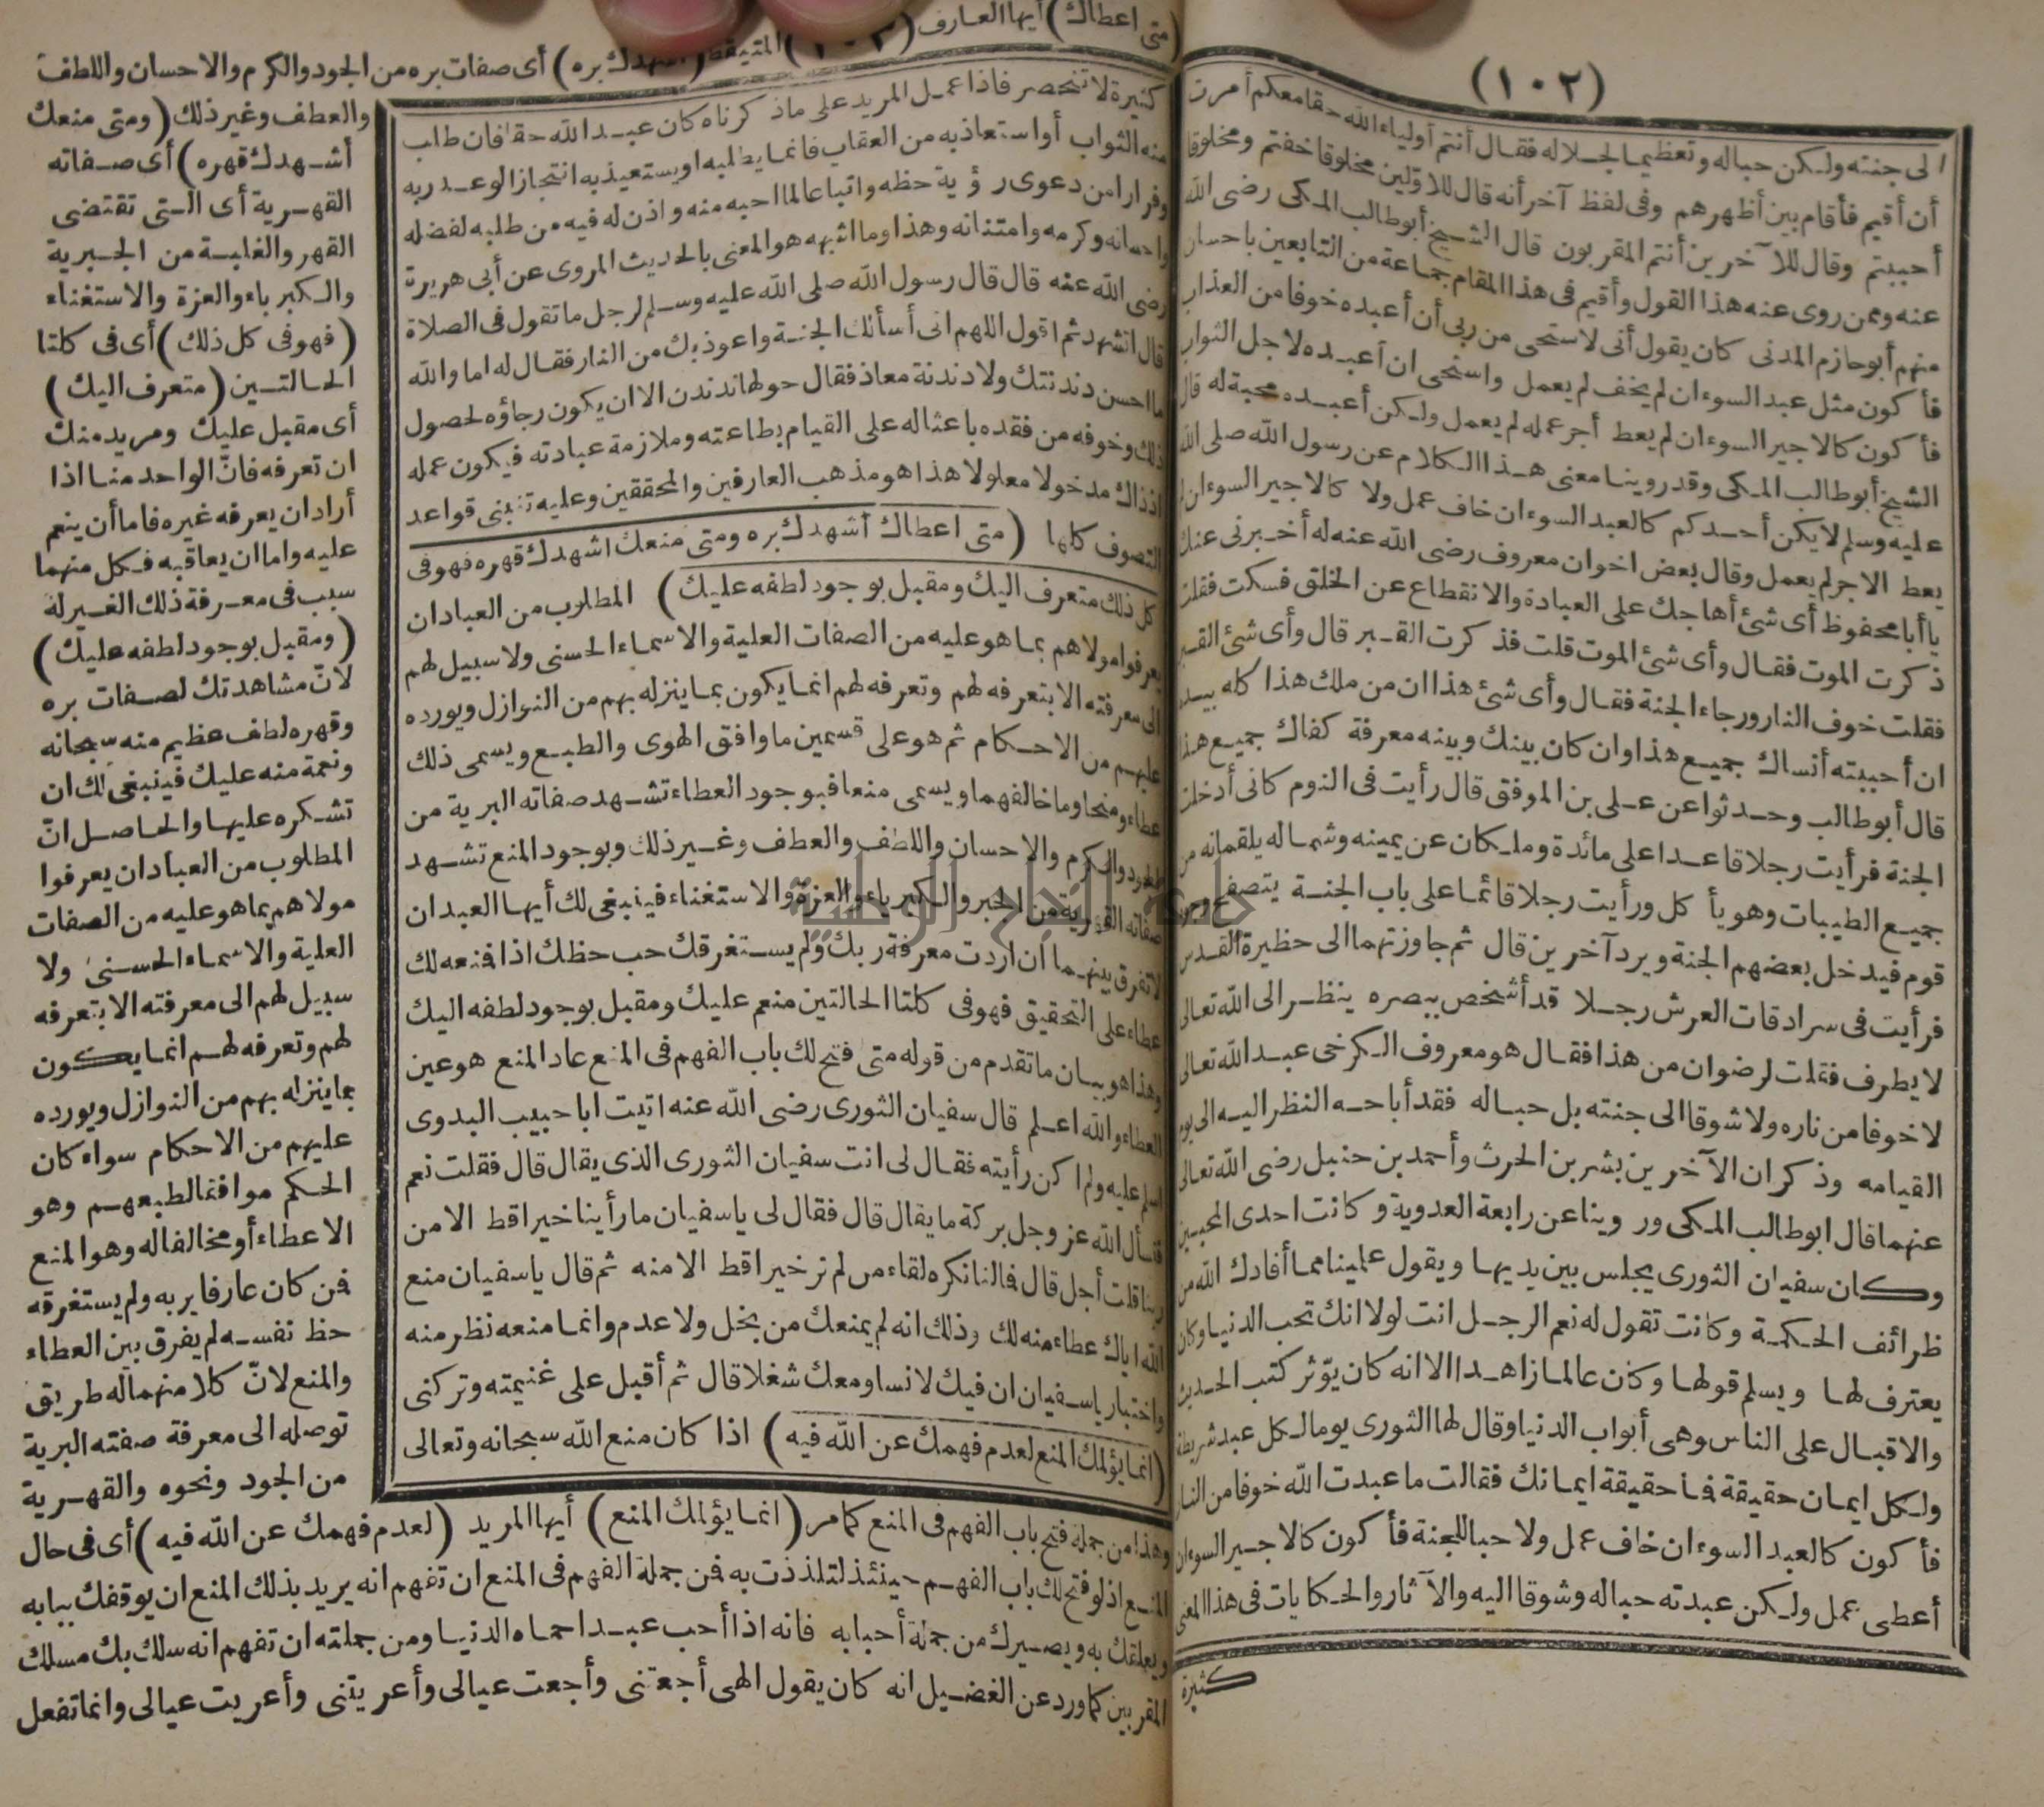 (١٠٢)
الى جنته ولكن حباله وتعظيما لجلاله فقال أنتم أولياء الله حقا معكم أمرت
أن أقيم فأقام بين أظهرهم وفى لفظ آخر أنه قال للاوّلين مخلوقا خفتم ومخلوقا
أحببتم وقال للآخرين أنتم المقربون قال الشيخ أبوطالب المكى رضى الله
عنه وممن روى عنه هذا القول وأقيم فى هذا المقام جماعة من التابعين باحسان
منهم أبوحازم المدنى كان يقول أنى لاستحى من ربى أن أعبده خوفا من العذاب
فأكون مثل عبد السوء ان لم يخف لم يعمل واستحى ان أعبده لاجل الثواب
فأكون كالاجير السوء ان لم يعط أجر عمله لم يعمل ولكن أعبده محبة له قال
الشيخ أبوطالب المكى وقد روينا معنى هذا الكلام عن رسول الله صلى الله
عليه وسلم لا يكن أحدكم كالعبد السوء ان خاف عمل ولا كالاجير السوء ان لم
يعط الاجر لم يعمل وقال بعض اخوان معروف رضى الله عنه له أخبرنى عنك
يا أبا محفوظ أى شئ أهاجك على العبادة والانقطاع عن الخلق فسكت فقلت
ذكرت الموت فقال وأى شئ الموت قلت فذكرت القبر قال وأى شئ القبر
فقلت خوف النار ورجاء الجنة فقال وأى شئ هذا ان من ملك هذا كله بيده
ان أحببته أنساك جميع هذا وان كان بينك وبينه معرفة كفاك جميع هذا
قال أبوطالب وحدثوا عن على بن الموفق قال رأيت فى النوم كانى أدخلت
الجنة فرأيت رجلا قاعدا على مائدة وملكان عن يمينه وشماله يلقمانه من
جميع الطيبات وهو يأكل ورأيت رجلا قائما على باب الجنة يتصفح وجوه
قوم فيدخل بعضهم الجنة ويرد آخرين قال ثم جاوزتهما الى حظيرة القدس
فرأيت فى سرادقات العرش رجلا قد أشخص ببصره ينظر الى الله تعالى
لا يطرف فقلت لرضوان من هذا فقال هو معروف الكرخى عبد الله تعالى
لا خوفا من ناره ولا شوقا الى جنته بل حباله فقد أباحه النظر اليه الى يوم
القيامه وذكر ان الآخرين بشر بن الحرث وأحمد بن حنبل رضى الله تعالى
عنهما قال ابوطالب المكى وروينا عن رابعة العدوية وكانت احدى المحبين
وكان سفيان الثورى يجلس بين يديها ويقول علمينا مما أفادك الله من
ظرائف الحكمة وكانت تقول له نعم الرجل انت لولا انك تحب الدنيا وكان
يعترف لها ويسلم قولها وكان عالما زاهدا الا انه كان يؤثر كتب الحديث
والاقبال على الناس وهى أبواب الدنيا وقال لها الثورى يوما لكل عبد شريطة
ولكل ايمان حقيقة فما حقيقة ايمانك فقالت ما عبدت الله خوفا من النار
فأكون كالعبد السوء ان خاف عمل ولا حبا للجنة فأكون كالاجير السوء ان
أعطى عمل ولكن عبدته حباله وشوقا اليه والآثار والحكايات فى هذا المعنى
كثيرة
(متى اعطاك) أيها العارف (١٠٣) المتيقظ (أشهدك بره) أى صفات بره من الجود والكرم والاحسان واللطف
والعطف وغير ذلك (ومتى منعك
أشهدك قهره) أى صفاته
القهرية أى التى تقتضى
القهر والغلبة من الجبرية
والكبرياء والعزة والاستغناء
(فهو فى كل ذلك) أى فى كلتا
الحالتين (متعرف اليك)
أى مقبل عليك ومريد منك
ان تعرفه فانّ الواحد منا اذا
أراد ان يعرفه غيره فاما أن ينعم
عليه واما ان يعاقبه فكل منهما
سبب فى معرفة ذلك الغير له
(ومقبل بوجود لطفه عليك)
لانّ مشاهدتك لصفات بره
وقهره لطف عظيم منه سبحانه
ونعمة منه عليك فينبغى لك ان
تشكره عليها والحاصل انّ
المطلوب من العباد ان يعرفوا
مولاهم بما هو عليه من الصفات
العلية والاسماء الحسنى ولا
سبيل لهم الى معرفته الا بتعرفه
لهم وتعرفه لهم انما يكون
بما ينزله بهم من النوازل ويورده
عليهم من الاحكام سواء كان
الحكم موافقا لطبعهم وهو
الاعطاء أو مخالفا له وهو المنع
فمن كان عارفا بربه ولم يستغرقه
حظ نفسه لم يفرق بين العطاء
والمنع لانّ كلا منهما له طريق
توصله الى معرفة صفته البرية
من الجود ونحوه والقهرية
كثيرة لا تنحصر فاذا عمل المريد على ماذكرناه كان عبد الله حقا فان طلب
منه الثواب أو استعاذ به من العقاب فانما يطلبه او يستعيذ به انتجاز الوعد ربه
وفرارا من دعوى رؤية حظه واتباعا لما احبه منه واذن له فيه من طلبه لفضله
واحسانه وكرمه وامتنانه وهذا وما اشبهه هو المعنى بالحديث المروى عن أبى هريرة
رضى الله عنه قال قال رسول الله صلى الله عليه وسلم لرجل ما تقول فى الصلاة
قال اتشهد ثم اقول اللهم انى أسألك الجنة واعوذ بك من النار فقال له اما والله
ما احسن دندنتك ولا دندنة معاذ فقال حولها ندندن الا ان يكون رجاؤه لحصول
ذلك وخوفه من فقده باعثا له على القيام بطاعته وملازمة عبادته فيكون عمله
اذ ذاك مدخولا معلولا هذا هو مذهب العارفين والمحققين وعليه تنبنى قواعد
التصوف كلها (متى اعطاك أشهدك بره ومتى منعك اشهدك قهره فهو فى
كل ذلك متعرف اليك ومقبل بوجود لطفه عليك) المطلوب من العباد ان
يعرفوا مولاهم بما هو عليه من الصفات العلية والاسماء الحسنى ولا سبيل لهم
الى معرفته الا بتعرفه لهم وتعرفه لهم انما يكون بما ينزله بهم من النوازل ويورده
عليهم من الاحكام ثم هو على قسمين ما وافق الهوى والطبع ويسمى ذلك
عطاء ومنحا وما خالفهما ويسمى منعا فبوجود العطاء تشهد صفاته البرية من
الجود والكرم والاحسان واللطف والعطف وغير ذلك وبوجود المنع تشهد
صفاته القهرية من الجبر والكبرياء والعزة والاستغناء فينبغى لك أيها العبد ان
لا تفرق بينهما ان اردت معرفة ربك ولم يستغرقك حب حظك اذا فمنعه لك
عطاء على التحقيق فهو فى كلتا الحالتين منعم عليك ومقبل بوجود لطفه اليك
وهذا هو بيان ما تقدم من قوله متى فتح لك باب الفهم فى المنع عاد المنع هو عين
العطاء والله اعلم قال سفيان الثورى رضى الله عنه اتيت ابا حبيب البدوى
اسلم عليه ولم اكن رأيته فقال لى انت سفيان الثورى الذى يقال قال فقلت نعم
فنسأل الله عز وجل بركة ما يقال قال فقال لى يا سفيان ما رأينا خيرا قط الا من
ربنا قلت أجل قال فمالنا نكره لقاء من لم نر خيرا قط الا منه ثم قال يا سفيان منع
الله اياك عطاء منه لك وذلك انه لم يمنعك من بخل ولا عدم وانما منعه نظر منه
واختبار يا سفيان ان فيك لانسا ومعك شغلا قال ثم أقبل على غنيمته وتركنى
(انما يؤلمك المنع لعدم فهمك عن الله فيه) اذا كان منع الله سبحانه وتعالى
وهذا من جملة فتح باب الفهم فى المنع كما مر (انما يؤلمك المنع) أيها المريد (لعدم فهمك عن الله فيه) أى فى حال
المنع اذ لو فتح لك باب الفهم حينئذ لتلذذت به فمن جملة الفهم فى المنع ان تفهم انه يريد بذلك المنع ان يوقفك ببابه
ويعلقك به ويصيرك من جملة أحبابه فانه اذا أحب عبدا حماه الدنيا ومن جملته ان تفهم انه سلك بك مسلك
المقربين كما ورد عن الفضيل انه كان يقول الهى أجعتنى وأجعت عيالى وأعريتنى وأعريت عيالى وانما تفعل
جامعة النجاح الوطنية